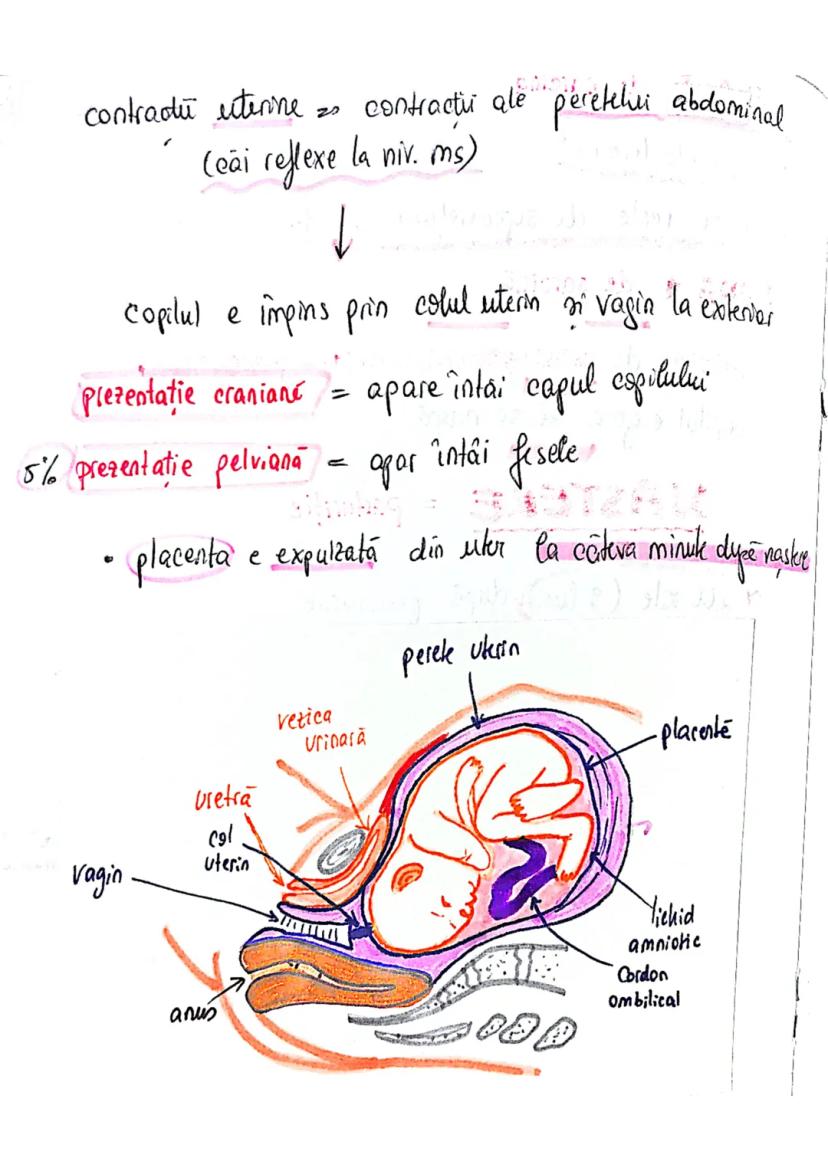 contracții uterine => contracții ale peretelui abdominal
(căi reflexe la niv. ms)
↓
copilul e împins prin colul uterin și vagin la exterior
prezentație craniană = apare întâi capul copilului
5% prezentație pelviană = apar întâi fesele
• placenta e expulzată din uter la câteva minute după naștere
perete uterin
vezica
urinară
placentă
uretră
col
uterin
vagin
lichid
amniotic
cordon
ombilical
anus